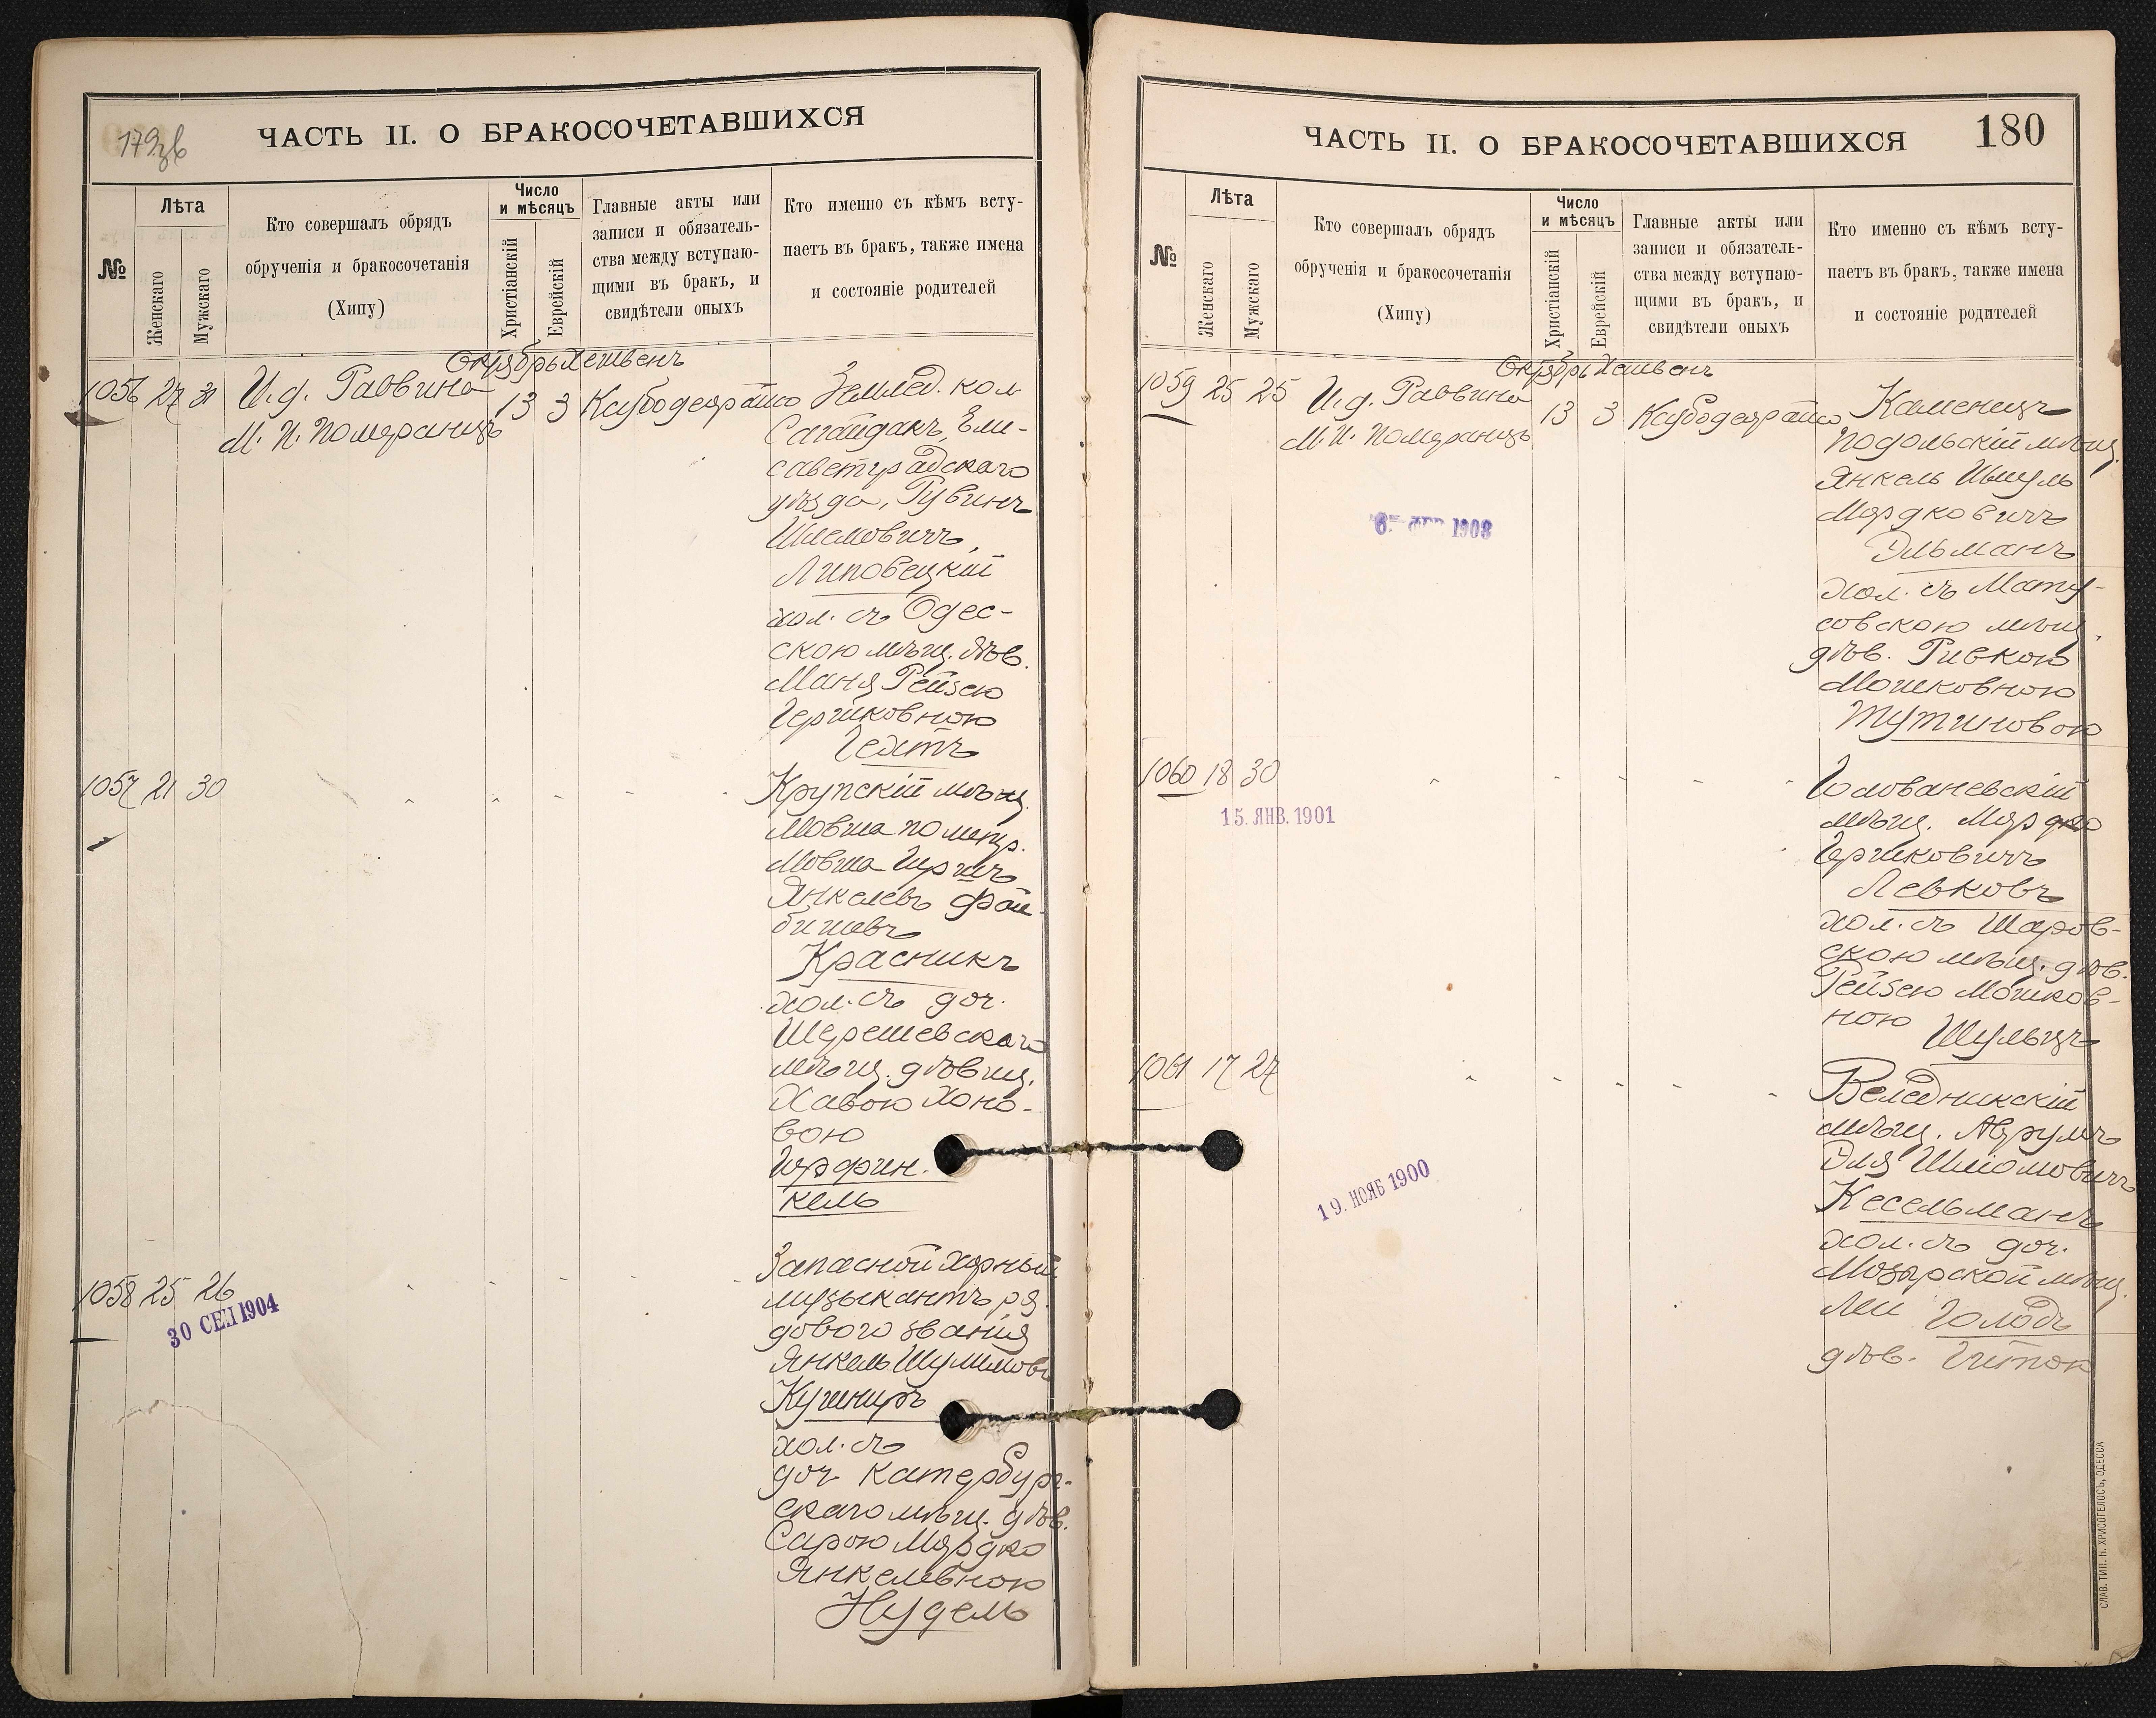 179об
ЧАСТЬ II. О БРАКОСОЧЕТАВШИХСЯ
№
Лѣта
Женскаго
Мужскаго
Кто совершалъ обрядъ
обрученія и бракосочетанія
(Хипу)
Число
и мѣсяцъ
Христіанскій
Еврейскій
Главные акты или
записи и обязатель-
ства между вступаю-
щими въ бракъ, и
свидѣтели оныхъ
Кто именно съ кѣмъ всту-
паетъ въ бракъ, также имена
и состояніе родителей
Октябрь Хешвенъ
1056 27 31
И. д. Раввина
М. И. Померанцъ
13 3
Землед. кол.
Сагайдакъ, Ели-
саветградскаго
уѣзда, Рувинъ
Шлемовичъ,
Липовецкій
хол. съ Одес-
скою мѣщ. дѣв.
Маня Рейзею
Гершковною
Гехтъ
1057 21 30
Крупскій мѣщ.
Мовша по метр.
Мовша Гиршъ
Янкелевъ Фай-
бишевъ
Красникъ
хол. съ доч.
Шерешевскаго
мѣщ. дѣвиц.
Хавою Хоно-
вою
Гурфин-
кель
1058 25 26
30 СЕН 1904
Запасной хорный
музыкантъ ря-
дового званія
Янкель Шулимовъ
Кушниръ
хол. съ
доч. Катербург-
скаго мѣщ. дѣв.
Сарою Мордко
Янкелевною
Нудель
ЧАСТЬ II. О БРАКОСОЧЕТАВШИХСЯ
180
№
Лѣта
Женскаго
Мужскаго
Кто совершалъ обрядъ
обрученія и бракосочетанія
(Хипу)
Число
и мѣсяцъ
Христіанскій
Еврейскій
Главные акты или
записи и обязатель-
ства между вступаю-
щими въ бракъ, и
свидѣтели оныхъ
Кто именно съ кѣмъ всту-
паетъ въ бракъ, также имена
и состояніе родителей
Октябрь Хешвенъ
1059 25 25
И. д. Раввина
М. И. Померанцъ
13 3
Каменецъ
Подольскій мѣщ.
Янкель Шмуль
Мордковичъ
Эльманъ
хол. съ Мату-
совскою мѣщ.
дѣв. Ривкою
Мошковною
Тутиновою
1060 18 30
15. ЯНВ. 1901
Голованевскій
мѣщ. Мордко
Гершковичъ
Левковъ
хол. съ Шаров-
скою мѣщ. дѣв.
Рейзею Мошков-
ною Шульцъ
1061 17 27
19. НОЯБ 1900
Веледникскій
мѣщ. Аврумъ
Эля Шліомовичъ
Кесельманъ
хол. съ доч.
Мозырской мѣщ.
Леи Голодъ
дѣв. Гитою
СЛАВ. ТИП. Н. ХРИСОГЕЛОСЪ, ОДЕССА